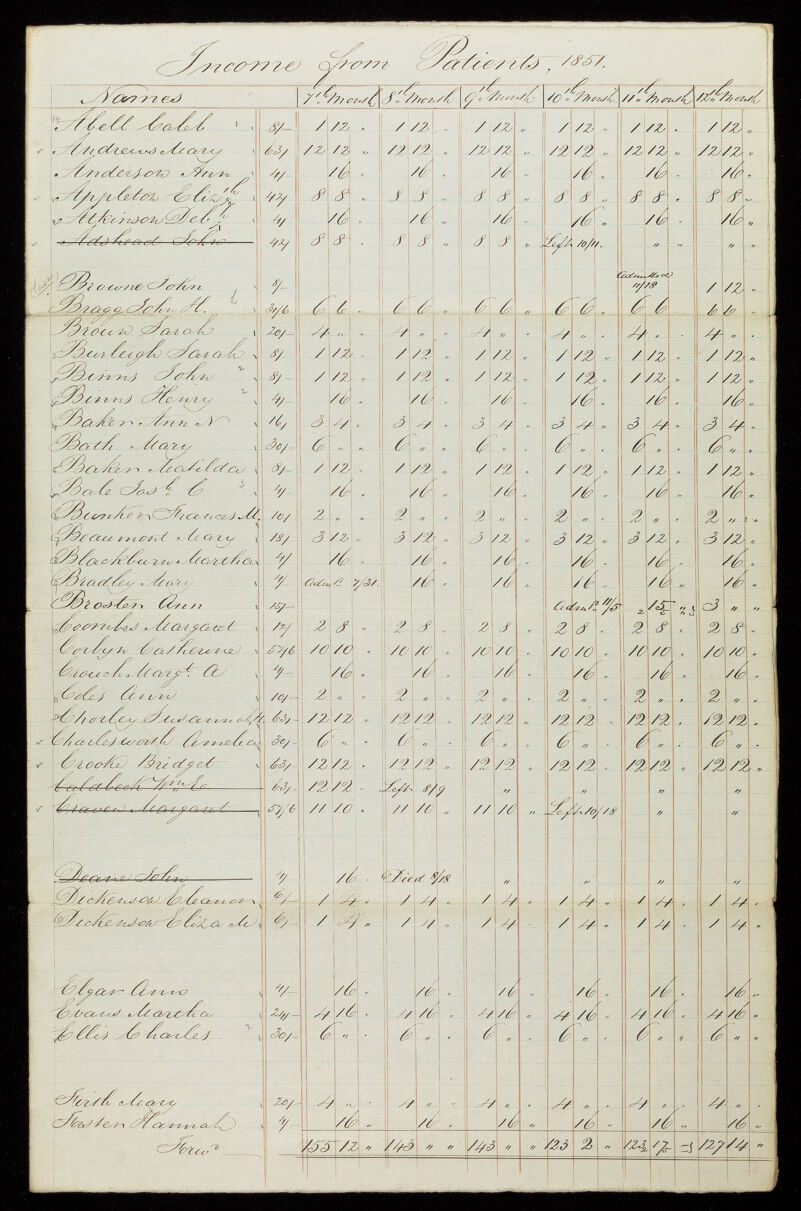 Income from Patients, 1851.
Names 7th Month 8th Month 9th Month 10th Month 11th Month 12th Month
Abell Caleb 8/- 1 12 " 1 12 " 1 12 " 1 12 " 1 12 " 1 12 "
Andrews Mary 63/ 12 12 " 12 12 " 12 12 " 12 12 " 12 12 " 12 12 "
Anderson Ann 4/- 16 " 16 " 16 " 16 " 16 " 16 "
Appleton Elizth 42/ 8 8 " 8 8 " 8 8 " 8 8 " 8 8 " 8 8 "
Atkinson Deb 4/ 16 " 16 " 16 " 16 " 16 " 16 "
Adshead John 42/ 8 8 " 8 8 " 8 8 " Left 10/11. " " " "
Browne John 8/- Admitted 11/18 1 12 "
Bragg John H. 31/6 6 6 " 6 6 " 6 6 " 6 6 " 6 6 " 6 6 "
Brown Sarah 20/- 4 " " 4 " " 4 " " 4 " " 4 " " 4 " "
Burleigh Sarah 8/- 1 12 " 1 12 " 1 12 " 1 12 " 1 12 " 1 12 "
Binns John 2 8/- 1 12 " 1 12 " 1 12 " 1 12 " 1 12 " 1 12 "
Binns Henry 2 4/- 16 " 16 " 16 " 16 " 16 " 16 "
Baker Ann N 16/ 3 4 " 3 4 " 3 4 " 3 4 " 3 4 " 3 4 "
Bath Mary 30/- 6 " " 6 " " 6 " " 6 " " 6 " " 6 " "
Baker Matilda 8/- 1 12 " 1 12 " 1 12 " 1 12 " 1 12 " 1 12 "
Bale Josh C 3 4/- 16 " 16 " 16 " 16 " 16 " 16 "
Bunker Frances M. 10/ 2 " " 2 " " 2 " " 2 " " 2 " " 2 " "
Beaumont Mary 18/ 3 12 " 3 12 " 3 12 " 3 12 " 3 12 " 3 12 "
Blackburn Martha 4/ 16 " 16 " 16 " 16 " 16 " 16 "
Bradley Mary 4/ Admd 7/31. 16 " 16 " 16 " 16 " 16 "
Broster Ann 15/- Admd 11/5 3 " "
Coombes Margaret 12/ 2 8 " 2 8 " 2 8 " 2 8 " 2 8 " 2 8 "
Corbyn Catherine 52/6 10 10 " 10 10 " 10 10 " 10 10 " 10 10 " 10 10 "
Crouch Margt. A 4/- 16 " 16 " 16 " 16 " 16 " 16 "
Coles Ann 10/- 2 " " 2 " " 2 " " 2 " " 2 " " 2 " "
Chorley Susannah 63/- 12 12 " 12 12 " 12 12 " 12 12 " 12 12 " 12 12 "
Charlesworth Amelia 30/- 6 " " 6 " " 6 " " 6 " " 6 " " 6 " "
Crooke Bridget 63/- 12 12 " 12 12 " 12 12 " 12 12 " 12 12 " 12 12 "
Caldbeck Wm E 63/- 12 12 " Left 8/9 " " " "
Craven Margaret 57/6 11 10 " 11 10 " 11 10 " Left 10/18 " "
Deane John 4/ 16 " Died 8/18 " " " "
Dickenson Eleanor 6/- 1 4 " 1 4 " 1 4 " 1 4 " 1 4 " 1 4 "
Dickenson Eliza M 6/- 1 4 " 1 4 " 1 4 " 1 4 " 1 4 " 1 4 "
Elgar Ann 4/- 16 " 16 " 16 " 16 " 16 " 16 "
Evans Martha 24/- 4 16 " 4 16 " 4 16 " 4 16 " 4 16 " 4 16 "
Ellis Charles 2 30/- 6 " " 6 " " 6 " " 6 " " 6 " " 6 " "
Firth Mary 20/- 4 " " 4 " " 4 " " 4 " " 4 " " 4 " "
Forster Hannah 4/- 16 " 16 " 16 " 16 " 16 " 16 "
Forwd 155 12 " 143 " " 143 " " 123 2 " 127 14 "